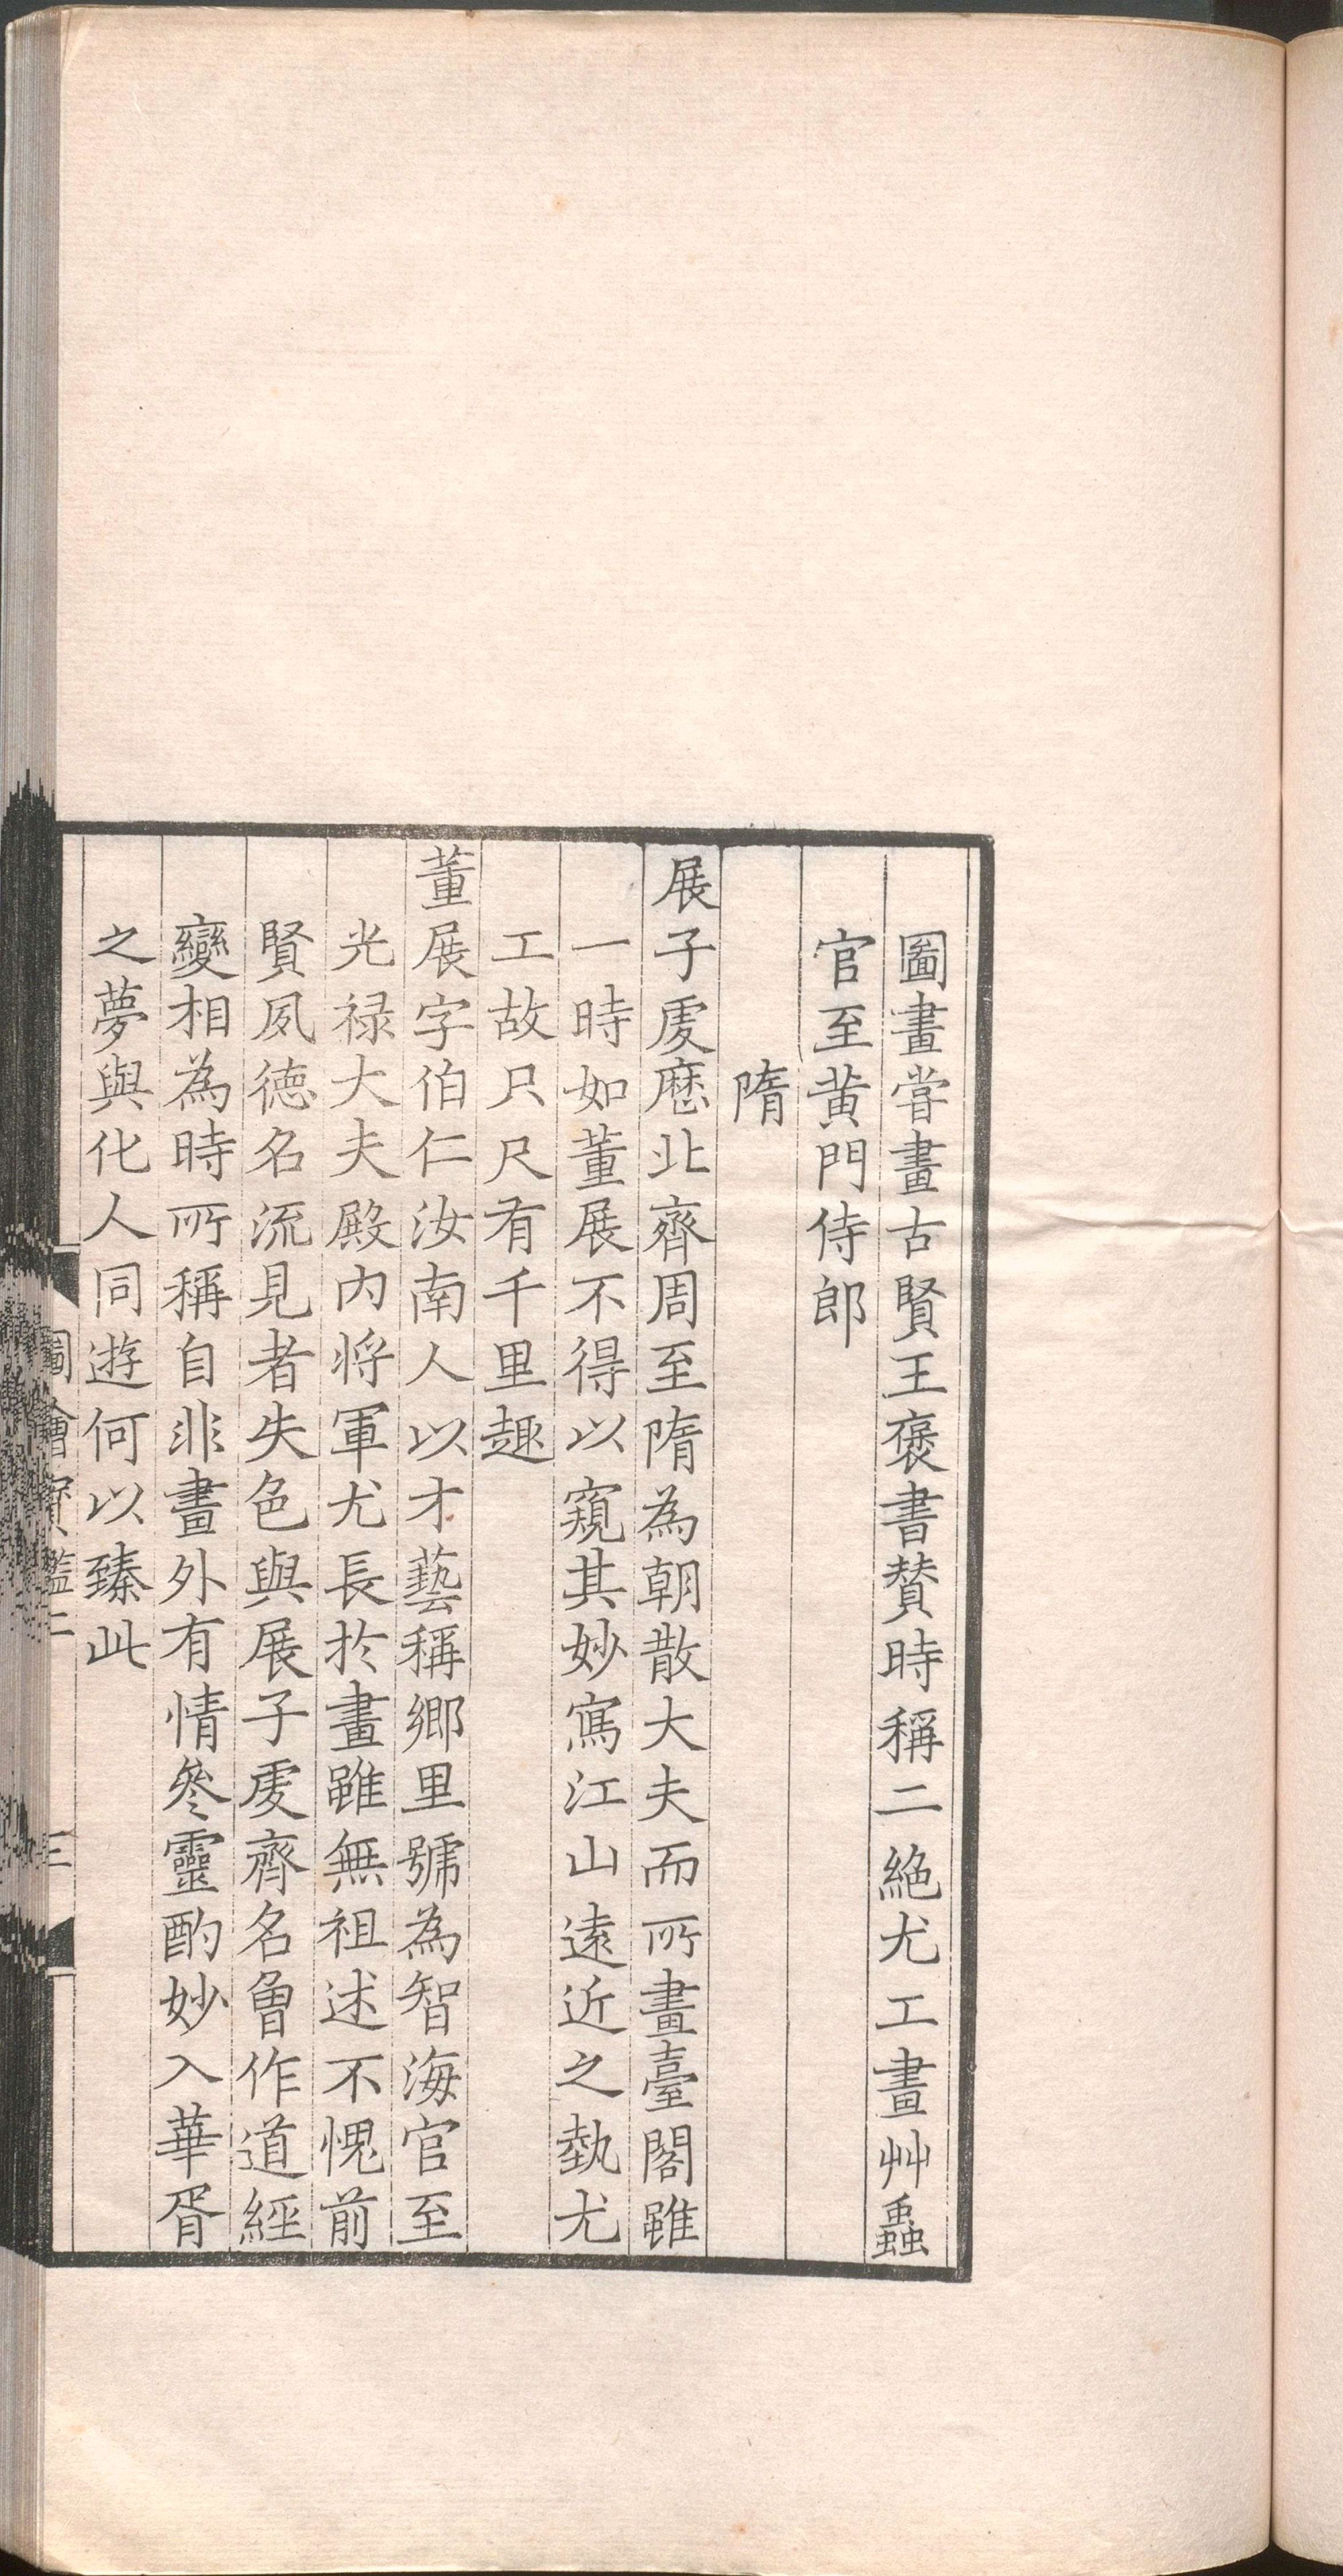 圗畫甞畫古賢王褒書賛時稱二絶尤工畫艸蟲
官至黄門侍郎
隋
展子䖍歴北齊周至隋為朝散大夫而所畫臺閣雖
一時如董展不得以窺其妙寫江山遠近之埶尤
工故只尺有千里趣
董展字伯仁汝南人以才藝稱鄉里號為智海官至
光禄大夫殿内将軍尤長於畫雖無祖述不愧前
賢夙徳名流見者失色與展子䖍齊名曽作道經
變相為時所稱自非畫外有情叅靈酌妙入華胥
之夢與化人同遊何以臻此
圖繪寳鑑二
三